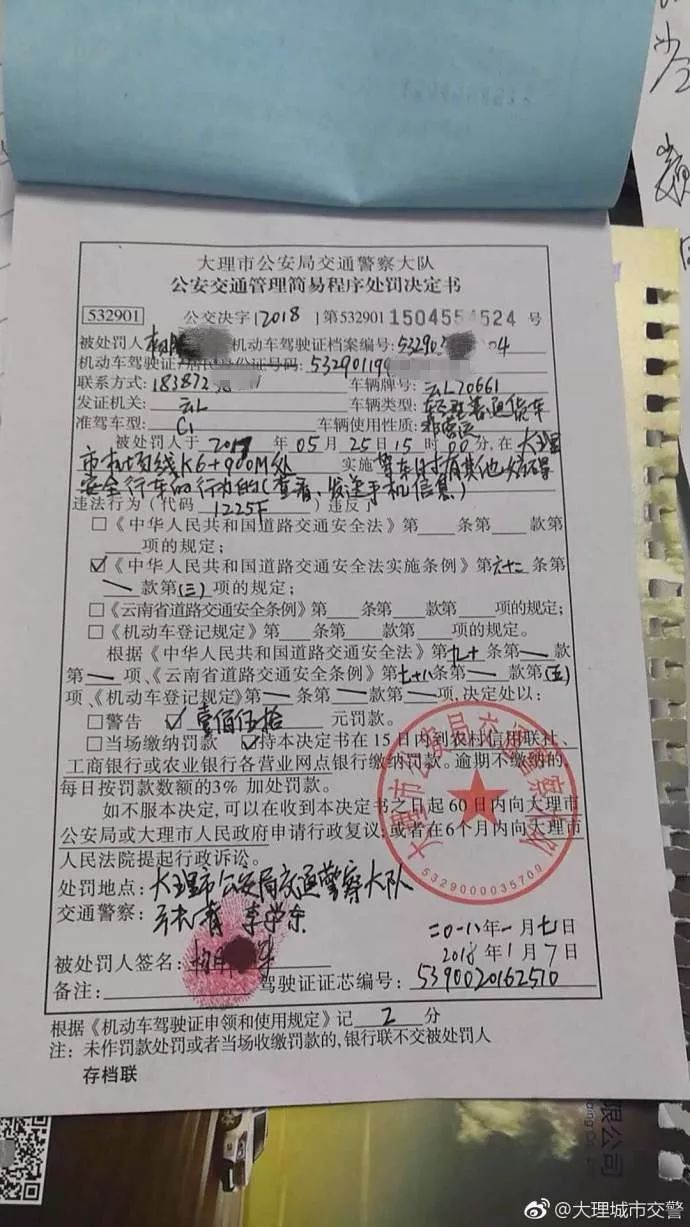 大理市公安局交通警察大队
公安交通管理简易程序处罚决定书
532901 公交决字[2018]第532901 1504554524 号
被处罚人 机动车驾驶证档案编号:53290 04
机动车驾驶证/居民身份证号码:532901199
联系方式:18387238 车辆牌号:云L70661
发证机关:云L 车辆类型:轻型普通货车
准驾车型:C1 车辆使用性质:非营运
被处罚人于2017年05月25日15时00分,在大理
市机场线K6+900M处 实施 驾车时有其他妨碍
安全行车的行为的(查看、发送手机信息)
违法行为(代码 1225F )违反了
□《中华人民共和国道路交通安全法》第 条第 款第
项的规定;
☑《中华人民共和国道路交通安全法实施条例》第六十二条第
一款第(三)项的规定;
□《云南省道路交通安全条例》第 条第 款第 项的规定;
□《机动车登记规定》第 条第 款第 项的规定。
根据《中华人民共和国道路交通安全法》第九十条第一款
第一项、《云南省道路交通安全条例》第七十八条第 款第(五)
项、《机动车登记规定》第一条第一款第一项,决定处以:
□警告 ☑壹佰伍拾 元罚款。
□当场缴纳罚款 ☑持本决定书在15日内到农村信用联社、
工商银行或农业银行各营业网点银行缴纳罚款。逾期不缴纳的,
每日按罚款数额的3% 加处罚款。
如不服本决定,可以在收到本决定书之日起60日内向大理市
公安局或大理市人民政府申请行政复议;或者在6个月内向大理市
人民法院提起行政诉讼。
处罚地点:大理市公安局交通警察大队
交通警察: 李学东
大理市公安局交通警察大队
5329000035709
二〇一八年一月七日
2018年1月7日
被处罚人签名:
备注: 驾驶证证芯编号:5390020162510
根据《机动车驾驶证申领和使用规定》记 2 分
注:未作罚款处罚或者当场收缴罚款的,银行联不交被处罚人
存档联
限公司
@大理城市交警